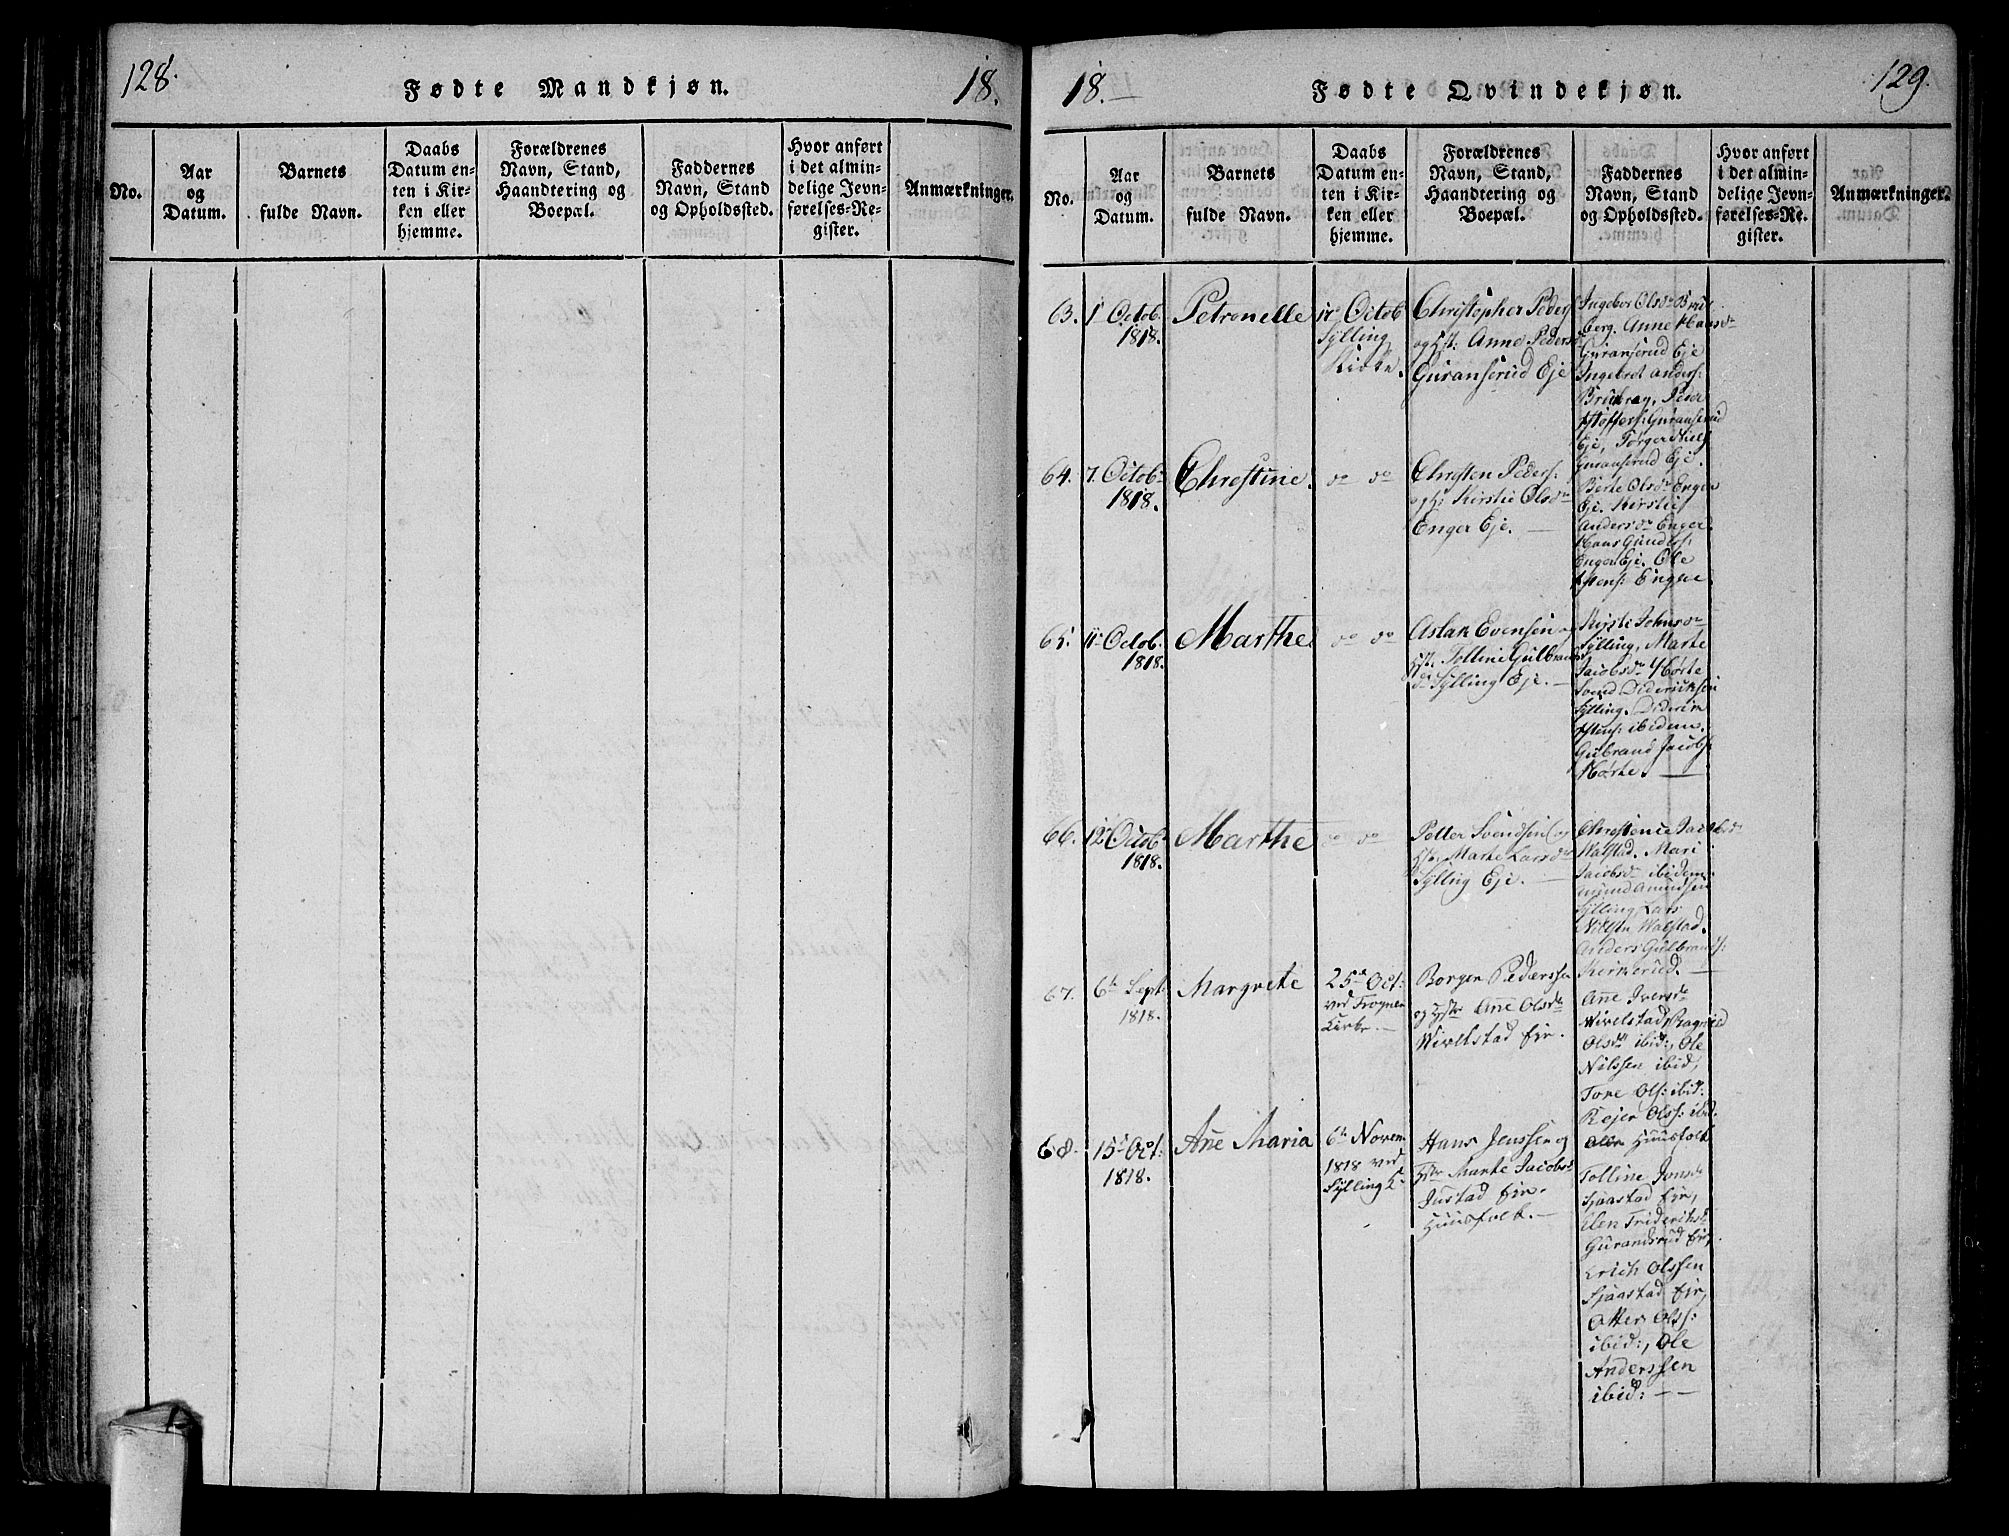 128.
Fødte Mandkjøn.
18.
No.
Aar
og
Datum.
Barnets
fulde Navn.
Daabs
Datum en-
ten i Kir-
ken eller
hjemme.
Forældrenes
Navn, Stand,
Haandtering og
Boepæl.
Faddernes
Navn, Stand
og Opholdssted.
Hvor anført
i det almin-
delige Jevn-
førelses-Re-
gister.
Anmærkninger.
18.
Fødte Qvindekjøn.
129.
No.
Aar
og
Datum.
Barnets
fulde Navn.
Daabs
Datum en-
ten i Kir-
ken eller
hjemme.
Forældrenes
Navn, Stand,
Haandtering og
Boepæl.
Faddernes
Navn, Stand
og Opholdssted.
Hvor anført
i det almin-
delige Jevn-
førelses-Re-
gister.
Anmærkninger.
63.
1 Octob.
1818.
Petronelle
Octob
Sylling
Kirke.
Christopher Peders
og Hst: Anne Pedersd
Guranserud Eje
Ingebor Olsdr
berg. Anne Hansdr
Guranserud Eje
Ingebret Anders:
Peder
Guranserud
Eje, Torger
Guranserud Eje.
64.
7. Octobr
1818.
Christine.
do do
Christen Peders:
og H: Kirstie Olsdr
Enger Eje. —
Berte Olsdr Enger
Eje. Kirstie
Andersdr Enger.
Hans Gunders:
Enger Eje. Ole
Engene.
65.
11. Octob.
1818.
Marthe
do do
Aslak Evensen og
Hst: Tolline Gulbrands
dr Sylling Eje. —
Kirsti Johnsdr
Sylling, Marte
Jacobsdr Hørte
Svend Dideriksen
Sylling.
ibidem.
Gulbrand Jacobs:
Hørte. —
66.
12 Octob.
1818.
Marthe
do do
Petter Svendsen og
Hst: Marte Larsdr
Sylling Eje. —
Christence Jacobsd
Walstad. Mari
Jacobsdr ibidem.
Amundsen
Sylling, Lars
Nilsen Walstad.
Anders Gulbrands:
Kirkerud. —
67.
6te Sept:
1818.
Margrete
25de Oct:
ved Frogner
Kirke. —
Borger Pederssen
og Hstr Ane Olsdr
Wivelstad Eje.
Ane Iversdr
Wivelstad, Ragnild
Olsdr ibid:, Ole
Nilssen ibid,
Tore Ols: ibid:
Rejer Olss: ibid.
Huusfolk
68.
15de Oct:
1818.
Ane Maria
6te Novem
1818 ved
Sylling K
Hans Jenssen og
Hstr Marte Jacobsd
Justad Eje.
Huusfolk. —
Tolline Jonsdr
Sjaastad Eje,
Elen Friderichsdr
Gurandsrud Eje,
Erich Olssen
Sjaastad Eje,
Otter Olss:
ibid:, Ole
Anderssen
ibid: — —